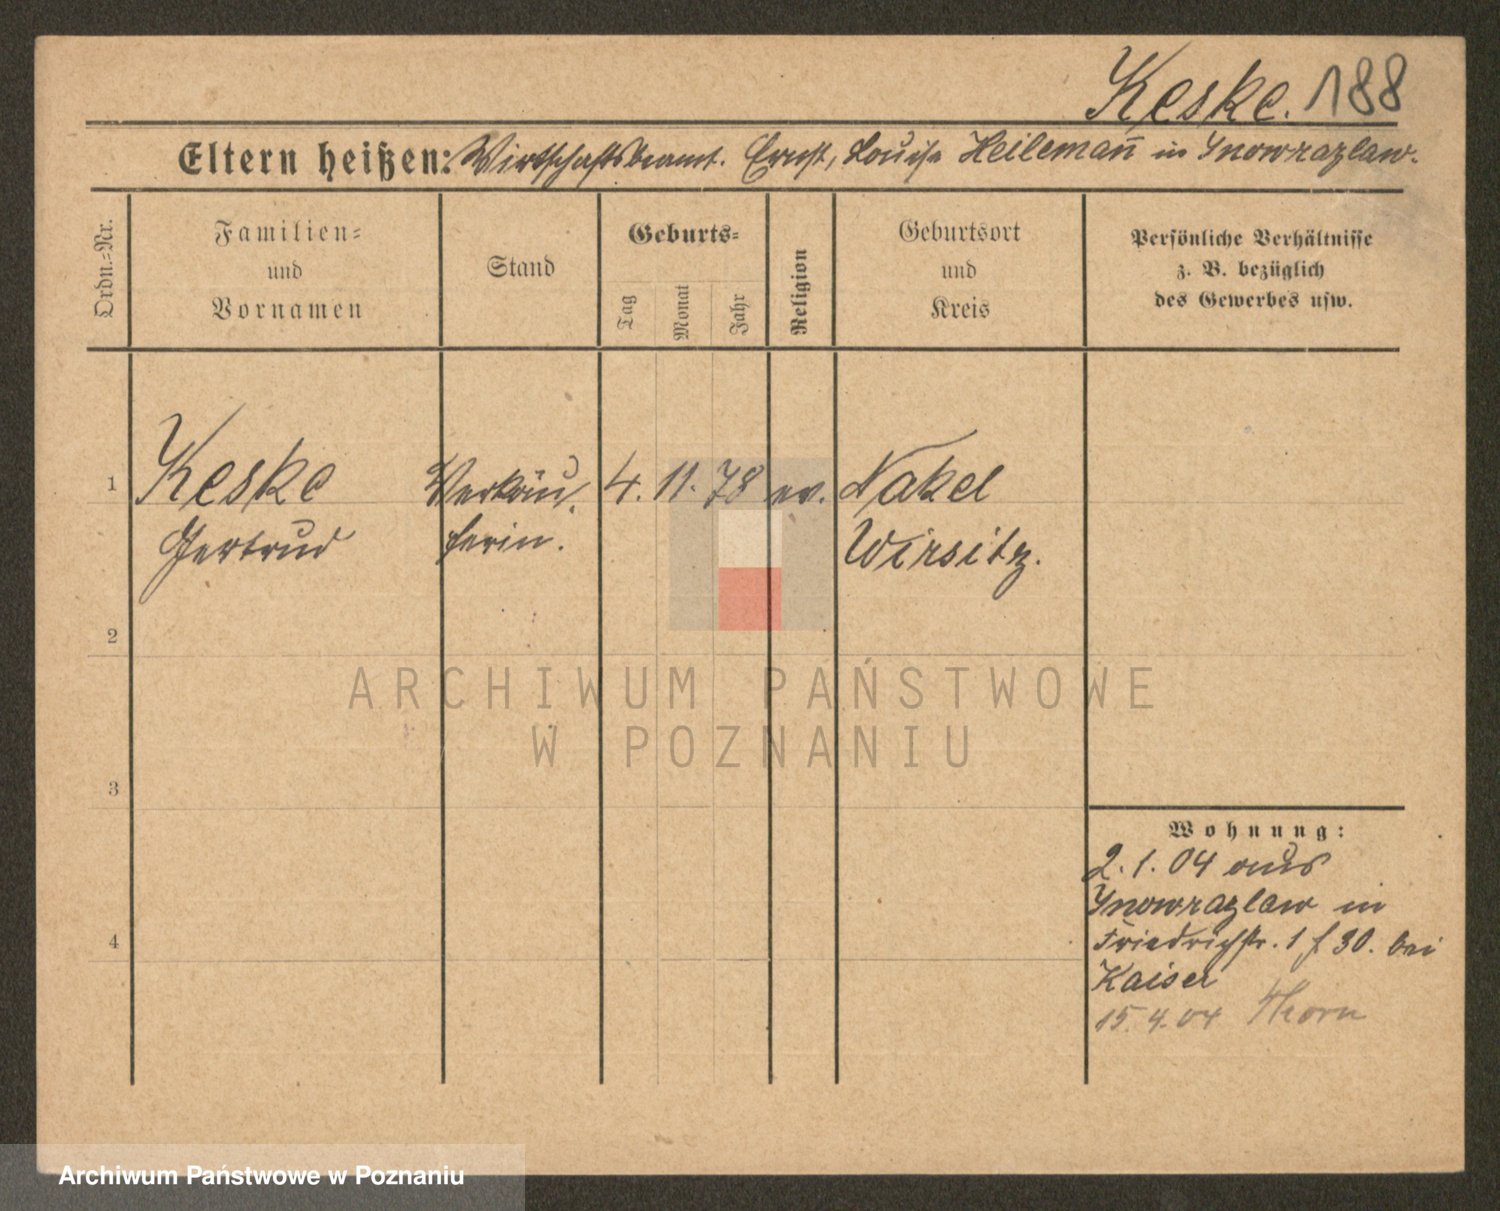 Keske. 188
Eltern heißen: Wirtschaftsbeamt. Ernst, Louise Heilemañ in Ynowrazlaw.
Ordn.-Nr.
Familien-
und
Vornamen
Stand
Geburts-
Tag
Monat
Jahr
Religion
Geburtsort
und
Kreis
Persönliche Verhältnisse
z. B. bezüglich
des Gewerbes usw.
1 Keske Verkäu- 4. 11. 78 ev. Nakel
Gertrud ferin. Wirsitz.
2
ARCHIWUM PAŃSTWOWE
W POZNANIU
3
Wohnung:
2.1.04 aus
Ynowrazlaw in
4
Friedrichstr. 1 f 30. bei
Kaiser
15.4.04 Thorn
Archiwum Państwowe w Poznaniu